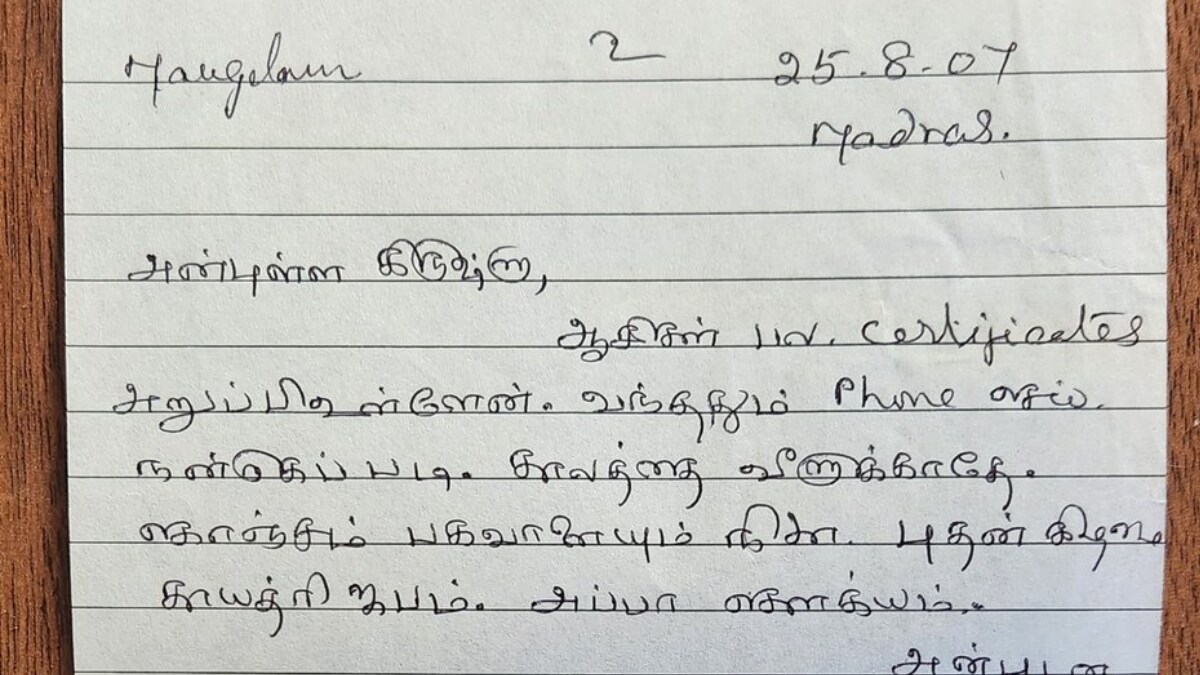 Mangelam 2 25.8.07
Madras.
அன்புள்ள கிருஷ்ணு,
ஆசிகள் பல. Certificates
அனுப்பிஉள்ளேன். வந்ததும் Phone செய்.
நன்கெப் படி. காலத்தை வீணுக்காதே.
கொஞ்சம் பகவானையும் நினை. புதன் கிழமை
காயத்ரி ஜபம். அப்பா சௌக்யம்.
அன்புடன